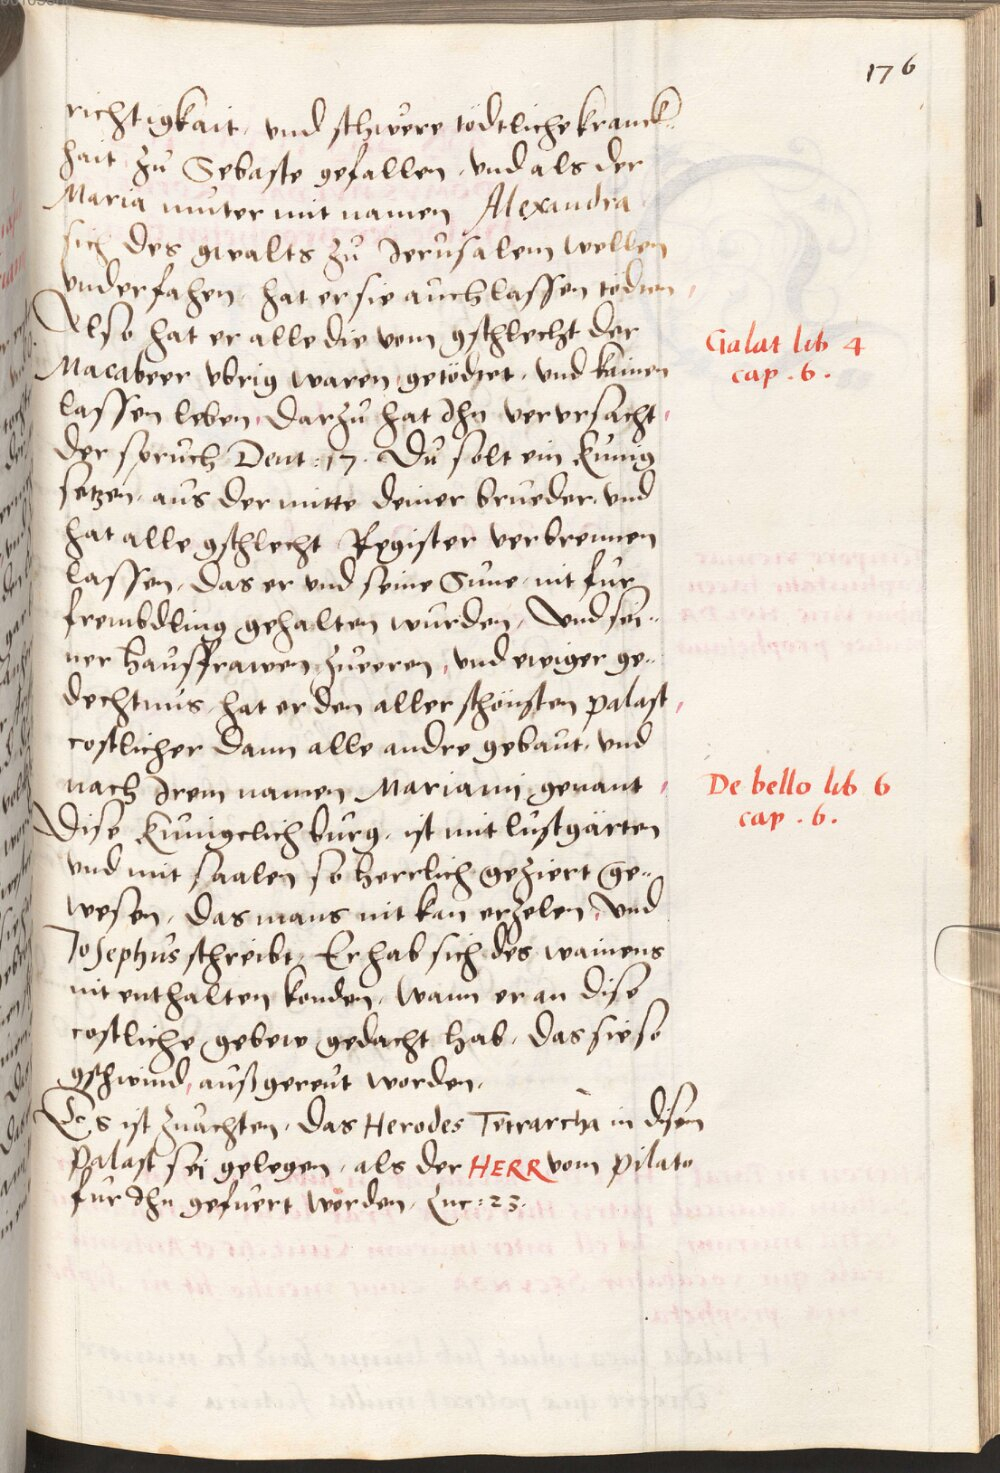 176
richtigkait, und schwere tödtliche kranck=
hait zu Sebaste gefallen, und als der
Maria muter mit namen Alexandra
sich des gwalts zu Jerusalem wellen
underfahen, hat er sie auch lassen tödten,
Also hat er alle die vom gschlecht der
Macabeer ubrig waren getödtet, und kainen
lassen leben, darzu hat Jhn verursacht,
der spruch Deut: 17. Du solt ein Kunig
setzen, aus der mitte deiner brueder, und
hat alle gschlecht Register verbrennen
lassen, das er und seine Sune, nit fur
frembdling gehalten wurden, Und sei=
ner hausfrawen zueeren, und ewiger ge=
dechtnus, hat er den aller schönsten palast,
costlicher dann alle andre gebaut, und
nach Jrem namen Mariami genant,
Dise Kunigclich burg, ist mit lustgärten
und mit saalen so herrlich geziert ge=
wesen, das mans nit kan erzelen, und
Josephus schreibt, Er hab sich des wainens
nit enthalten konden, wann er an dise
costliche gebew gedacht hab, das sie so
gschwind, außgereut worden.
Es ist zuachten, das Herodes Tetrarcha in disem
Palast sei gelegen, als der HERR vom Pilato
fur Jhn gefuert worden, Luc: 23.
Galat lib 4
cap. 6.
De bello lib 6
cap. 6.